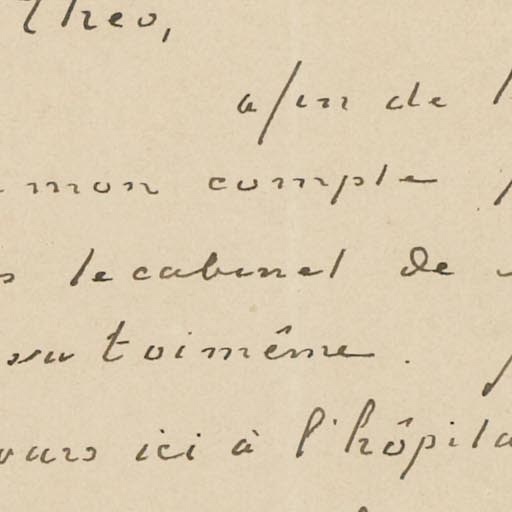 Theo,
afin de
mon compte
le cabinet de
vu toi même.
ici à l'hôpita